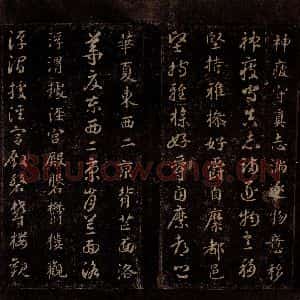 神疲守真志滿逐物意移
神疲守真志滿逐物意移
堅持雅操好爵自縻都邑
堅持雅操好爵自縻都邑
華夏東西二京背芒面洛
華夏東西二京背芒面洛
浮渭據涇宮殿磐欝樓觀
浮渭據涇宮殿磐欝樓觀
Shufawang.CN